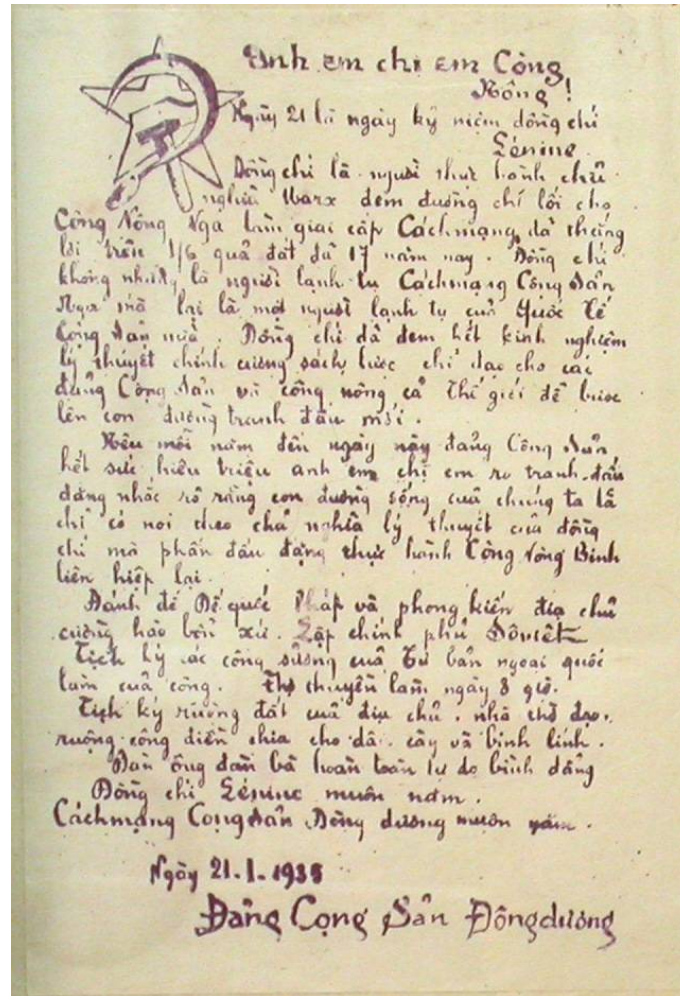 Anh em chị em Công
Nông!
Ngày 21 là ngày kỷ niệm đồng chí
Lénine
Đồng chí là người thực hành chủ
nghĩa Marx đem đường chỉ lối cho
Công Nông Nga làm giai cấp Cáchmạng đã thắng
lợi trên 1/6 quả đất đã 17 năm nay. Đồng chí
không những là người lãnh tụ Cáchmạng Cộng Sản
Nga mà lại là một người lãnh tụ của Quốc Tế
Cộng Sản nữa. Đồng chí đã đem hết kinh nghiệm
lý thuyết chính cương sách lược chỉ đạo cho cái
đảng Cộng Sản và công nông cả Thế giới để bước
lên con đường tranh đấu mới.
Nên mỗi năm đến ngày này đảng Cộng Sản
hết sức hiệu triệu anh em chị em ra tranh đấu
đặng nhắc rõ ràng con đường sống của chúng ta là
chỉ có noi theo chủ nghĩa lý thuyết của đồng
chí mà phấn đấu đặng thực hành Công Nông Binh
liên hiệp lại.
Đánh đổ Đế quốc Pháp và phong kiến địa chủ
cường hào bổn xứ. Lập chính phủ Sôviết
Tịch ký các công sưởng của Tư bản ngoại quốc
làm của công. Thợ thuyền làm ngày 8 giờ.
Tịch ký ruộng đất của địa chủ, nhà thờ đạo,
ruộng công điền chia cho dân cày và binh lính.
Đàn ông đàn bà hoàn toàn tự do bình đẳng
Đồng chí Lénine muôn năm.
Cáchmạng CộngSản Đông dương muôn năm.
Ngày 21-1-1935
Đảng Cộng Sản Đôngdương